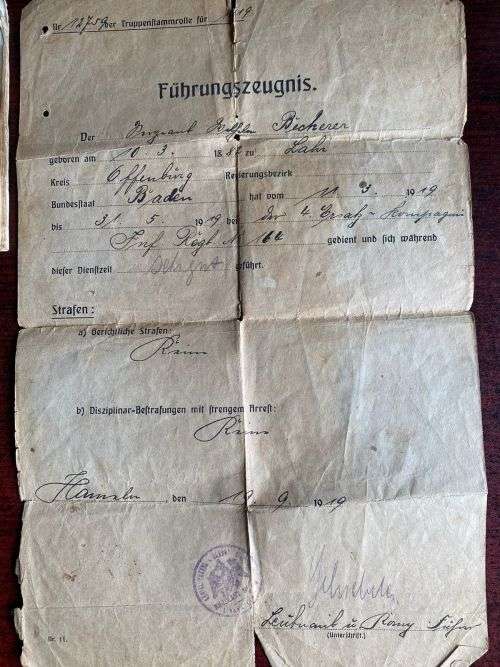 Nr. 12759 der Truppenstammrolle für 1919
Führungszeugnis.
Der Sergeant Wilhelm Becherer
geboren am 10. 3. zu Lahr
Kreis Offenburg Regierungsbezirk
Bundesstaat Baden hat vom 11. 3. 1919
bis 31. 5. 1919 bei der 4. Ersatz-Kompagnie
Inf. Rgt. N 164 gedient und sich während
dieser Dienstzeit sehr gut geführt.
Strafen:
a) Gerichtliche Strafen:
Keine
b) Disziplinar-Bestrafungen mit strengem Arrest:
Keine
Hameln, den 9. 1919
Leutnant u. Komp. Führer
(Unterschrift.)
Nr. 11.